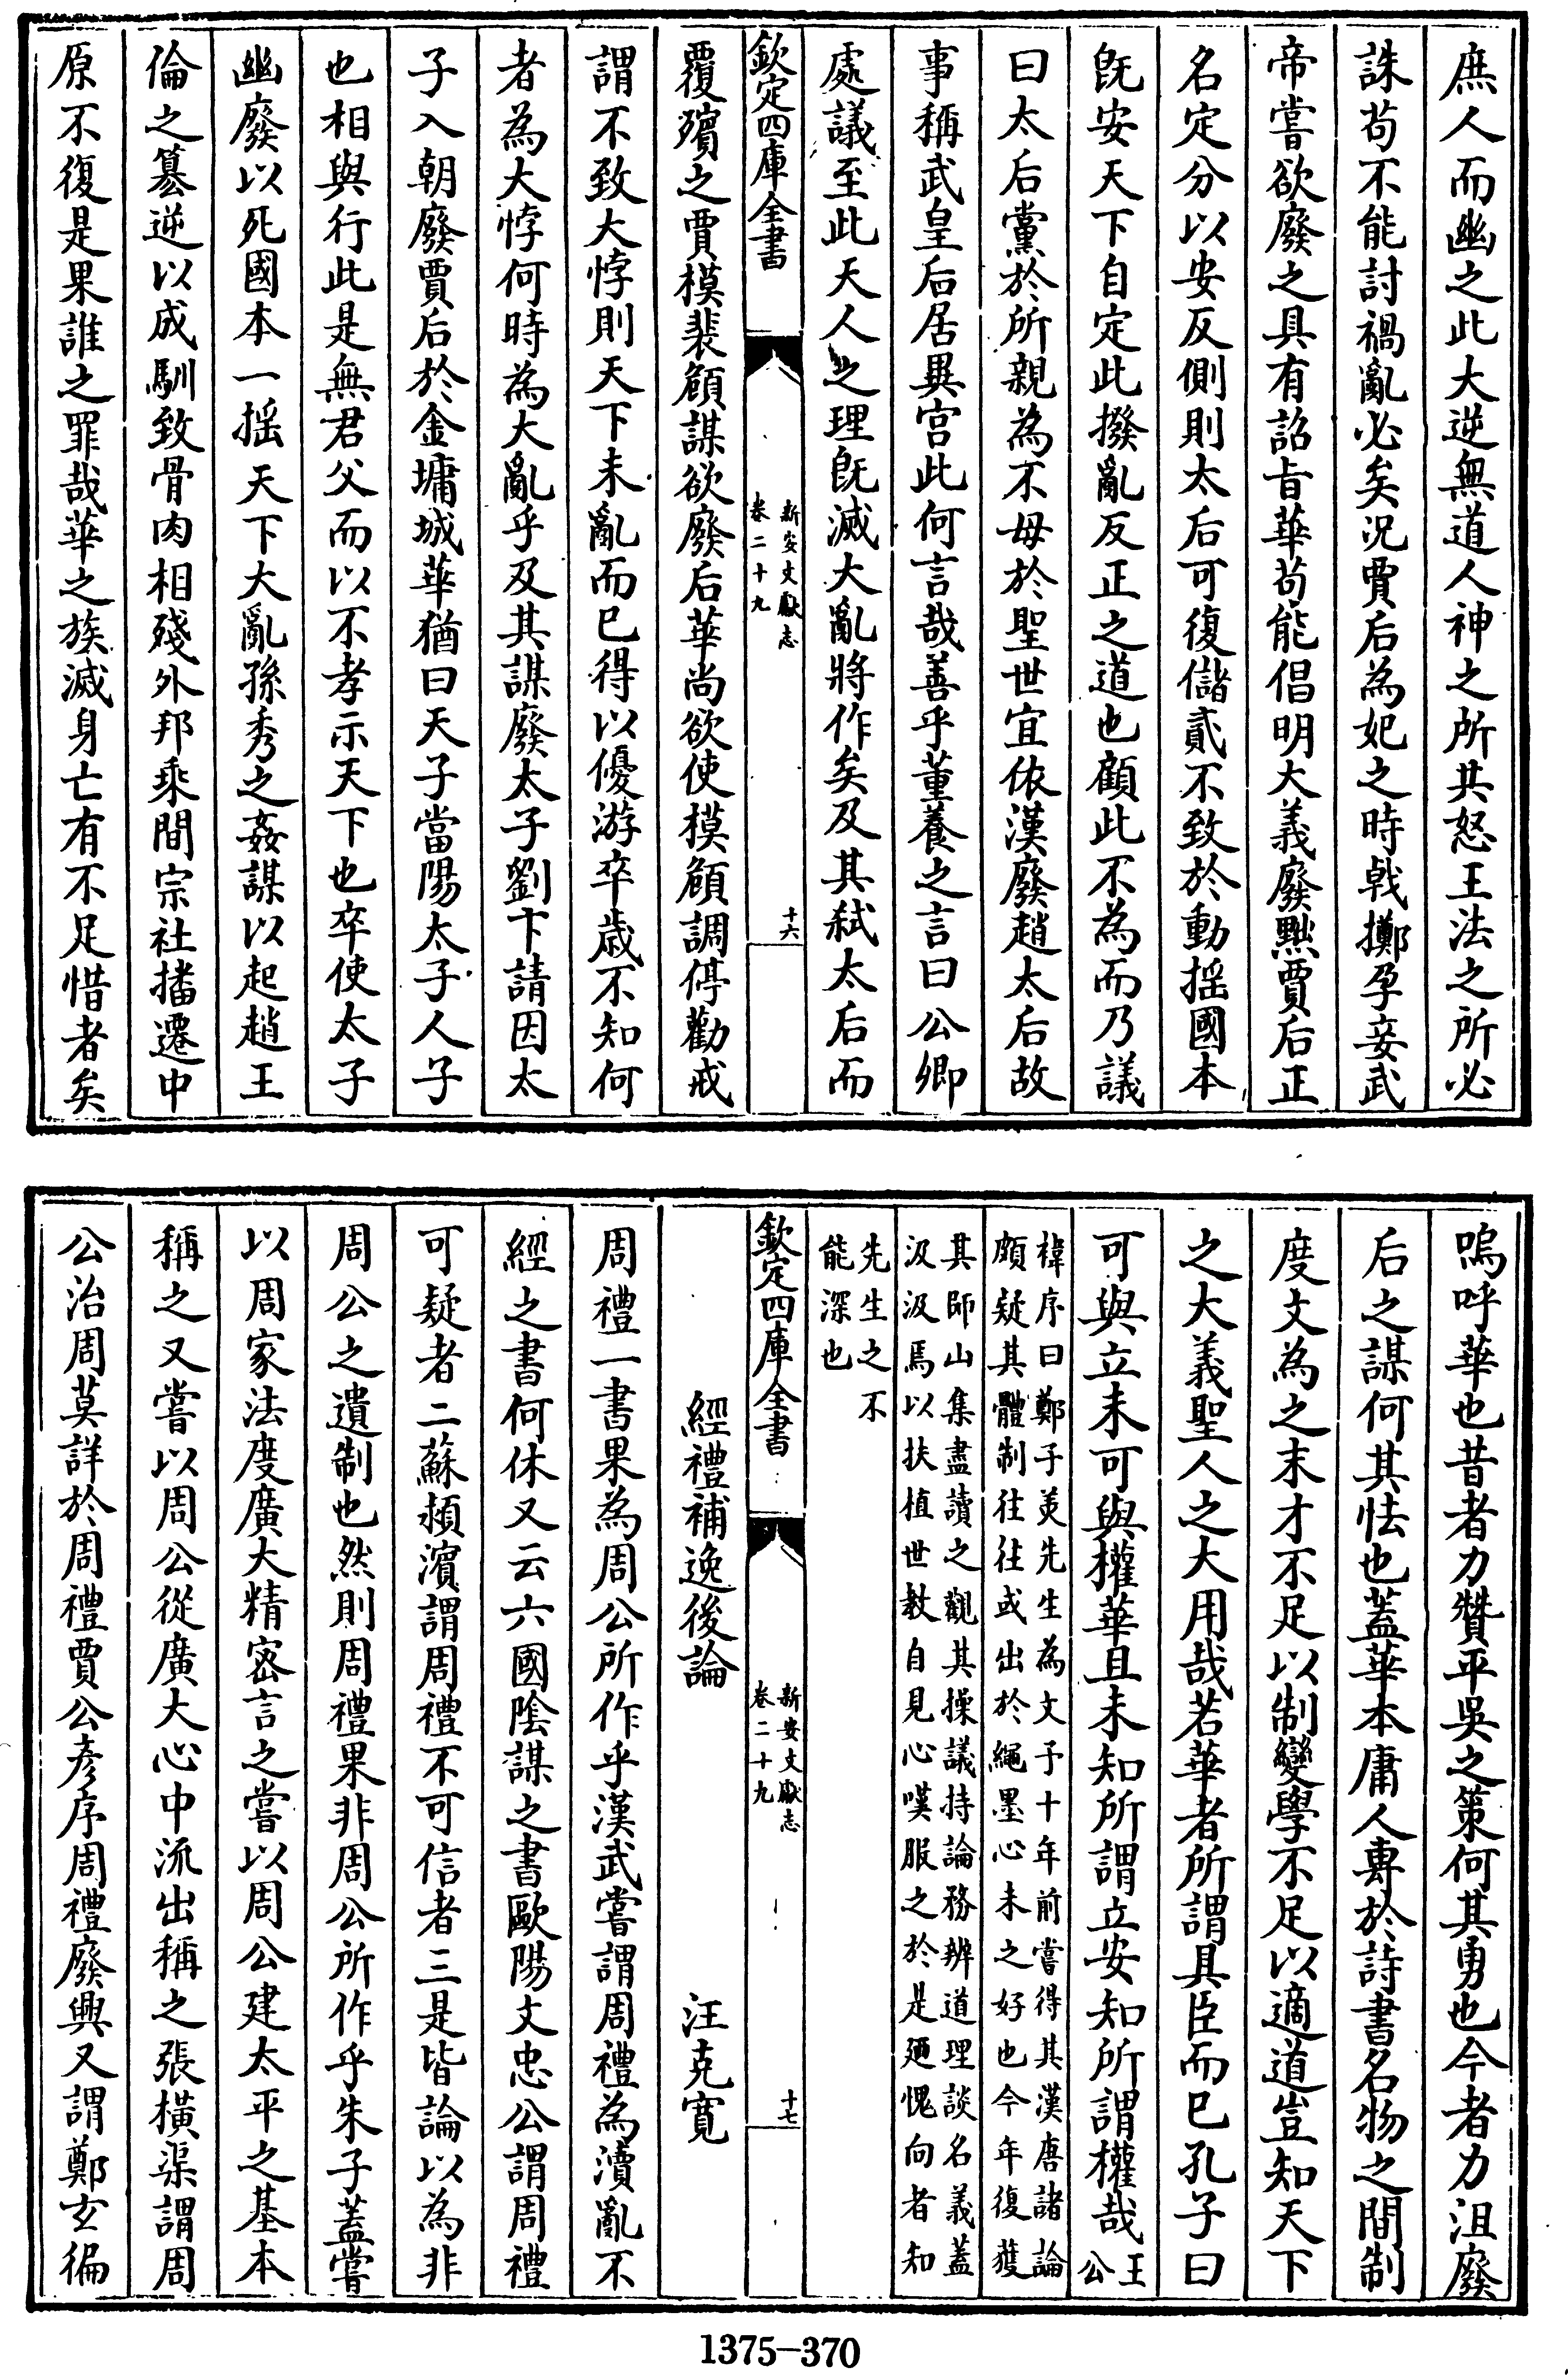 庶人而幽之此大逆無道人神之所共怒王法之所必
誅苟不能討禍亂必矣況賈后為妃之時戟擲孕妾武
帝嘗欲廢之具有詔旨華苟能倡明大義廢黜賈后正
名定分以安反側則太后可復儲貳不致於動揺國本
旣安天下自定此撥亂反正之道也顧此不為而乃議
曰太后黨於所親為不母於聖世宜依漢廢趙太后故
事稱武皇后居異宮此何言哉善乎董養之言曰公卿
處議至此天人之理旣滅大亂將作矣及其弑太后而
欽定四庫全書
新安文獻志
卷二十九
十六
覆殯之賈模裴頠謀欲廢后華尚欲使模頠調停勸戒
謂不致大悖則天下未亂而已得以優游卒歲不知何
者為大悖何時為大亂乎及其謀廢太子劉卞請因太
子入朝廢賈后於金墉城華猶曰天子當陽太子人子
也相與行此是無君父而以不孝示天下也卒使太子
幽廢以死國本一揺天下大亂孫秀之姦謀以起趙王
倫之簒逆以成馴致骨肉相殘外邦乘間宗社播遷中
原不復是果誰之罪哉華之族滅身亡有不足惜者矣
嗚呼華也昔者力贊平吳之策何其勇也今者力沮廢
后之謀何其怯也蓋華本庸人專於詩書名物之間制
度文為之末才不足以制變學不足以適道豈知天下
之大義聖人之大用哉若華者所謂具臣而已孔子曰
可與立未可與權華且未知所謂立安知所謂權哉王
公
禕序曰鄭子美先生為文子十年前嘗得其漢唐諸論
頗疑其體制往往或出於繩墨心未之好也今年復獲
其師山集盡讀之觀其操議持論務辨道理談名義蓋
汲汲焉以扶植世教自見心嘆服之於是廼愧向者知
先生之不
能深也
欽定四庫全書
新安文獻志
卷二十九
十七
經禮補逸後論　汪克寬
周禮一書果為周公所作乎漢武嘗謂周禮為瀆亂不
經之書何休又云六國陰謀之書歐陽文忠公謂周禮
可疑者二蘇潁濱謂周禮不可信者三是皆論以為非
周公之遺制也然則周禮果非周公所作乎朱子蓋嘗
以周家法度廣大精密言之嘗以周公建太平之基本
稱之又嘗以周公從廣大心中流出稱之張橫渠謂周
公治周莫詳於周禮賈公彥序周禮廢興又謂鄭玄徧
1375-370